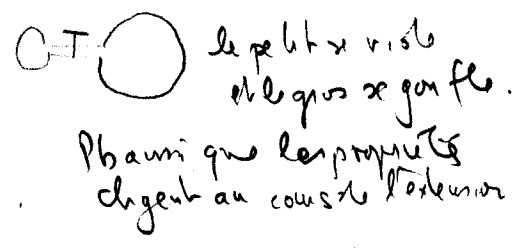 T
le petit se vide
et le gros se gonfle.
Pb aussi que les propriétés
chgent au cours de l'extension